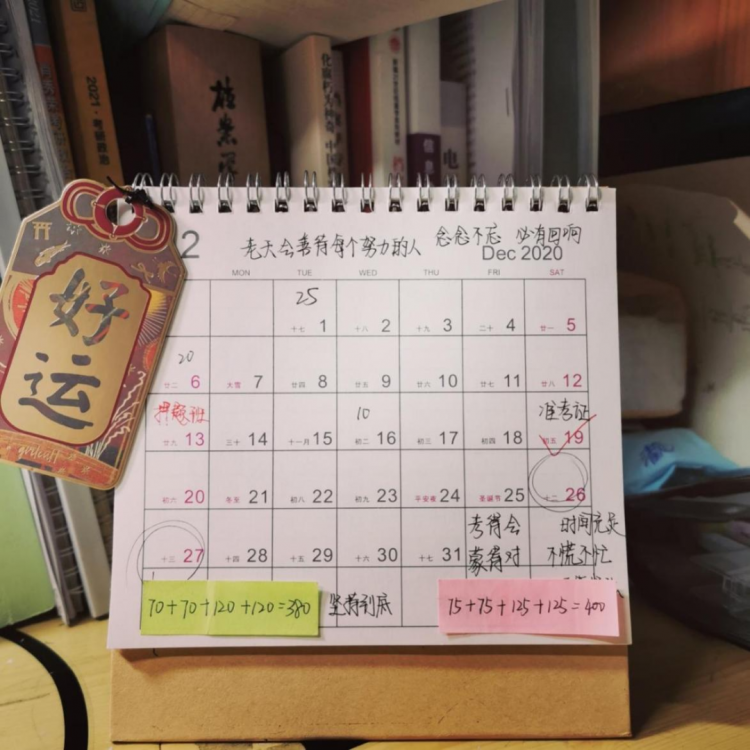 2021·考研政治
化腐朽为神奇 中国
好运
2
老天会善待每个努力的人
念念不忘 必有回响
Dec 2020
MON TUE WED THU FRI SAT
25
十七 1 十八 2 十九 3 二十 4 廿一 5
20
廿二 6 大雪 7 廿四 8 廿五 9 廿六 10 廿七 11 廿八 12
押题班 10 准考证
廿九 13 三十 14 十一月 15 初二 16 初三 17 初四 18 初五 19
初六 20 冬至 21 初八 22 初九 23 平安夜 24 圣诞节 25 十二 26
考得会 时间充足
十三 27 十四 28 十五 29 十六 30 十七 31 蒙得对 不慌不忙
70+70+120+120=380
坚持到底
75+75+125+125=400